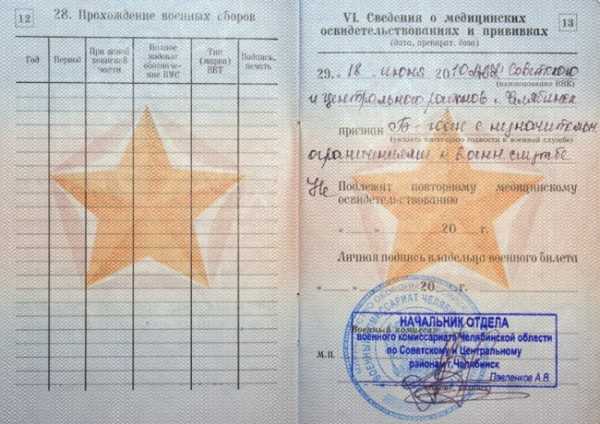 12
28. Прохождение военных сборов
Год
Период
При какой
воинской
части
Полное
кодовое
обозначе-
ние ВУС
Тип
(марка)
ВВТ
Подпись,
печать
VI. Сведения о медицинских
освидетельствованиях и прививках
(дата, препарат, доза)
13
29. „18“ июня 2010 Советского
(наименование ВВК)
и Центрального районов г. Челябинска
признан „Б“ - годен с незначительн
(указать категорию годности к военной службе)
ограничениями к воен. службе
Не Подлежит повторному медицинскому
освидетельствованию
„ “ 20 г.
Личная подпись владельца военного билета
„ “ 20 г.
Военный комиссар
М.П.
НАЧАЛЬНИК ОТДЕЛА
военного комиссариата Челябинской области
по Советскому и Центральному
районам г. Челябинск
Павленков А.В.